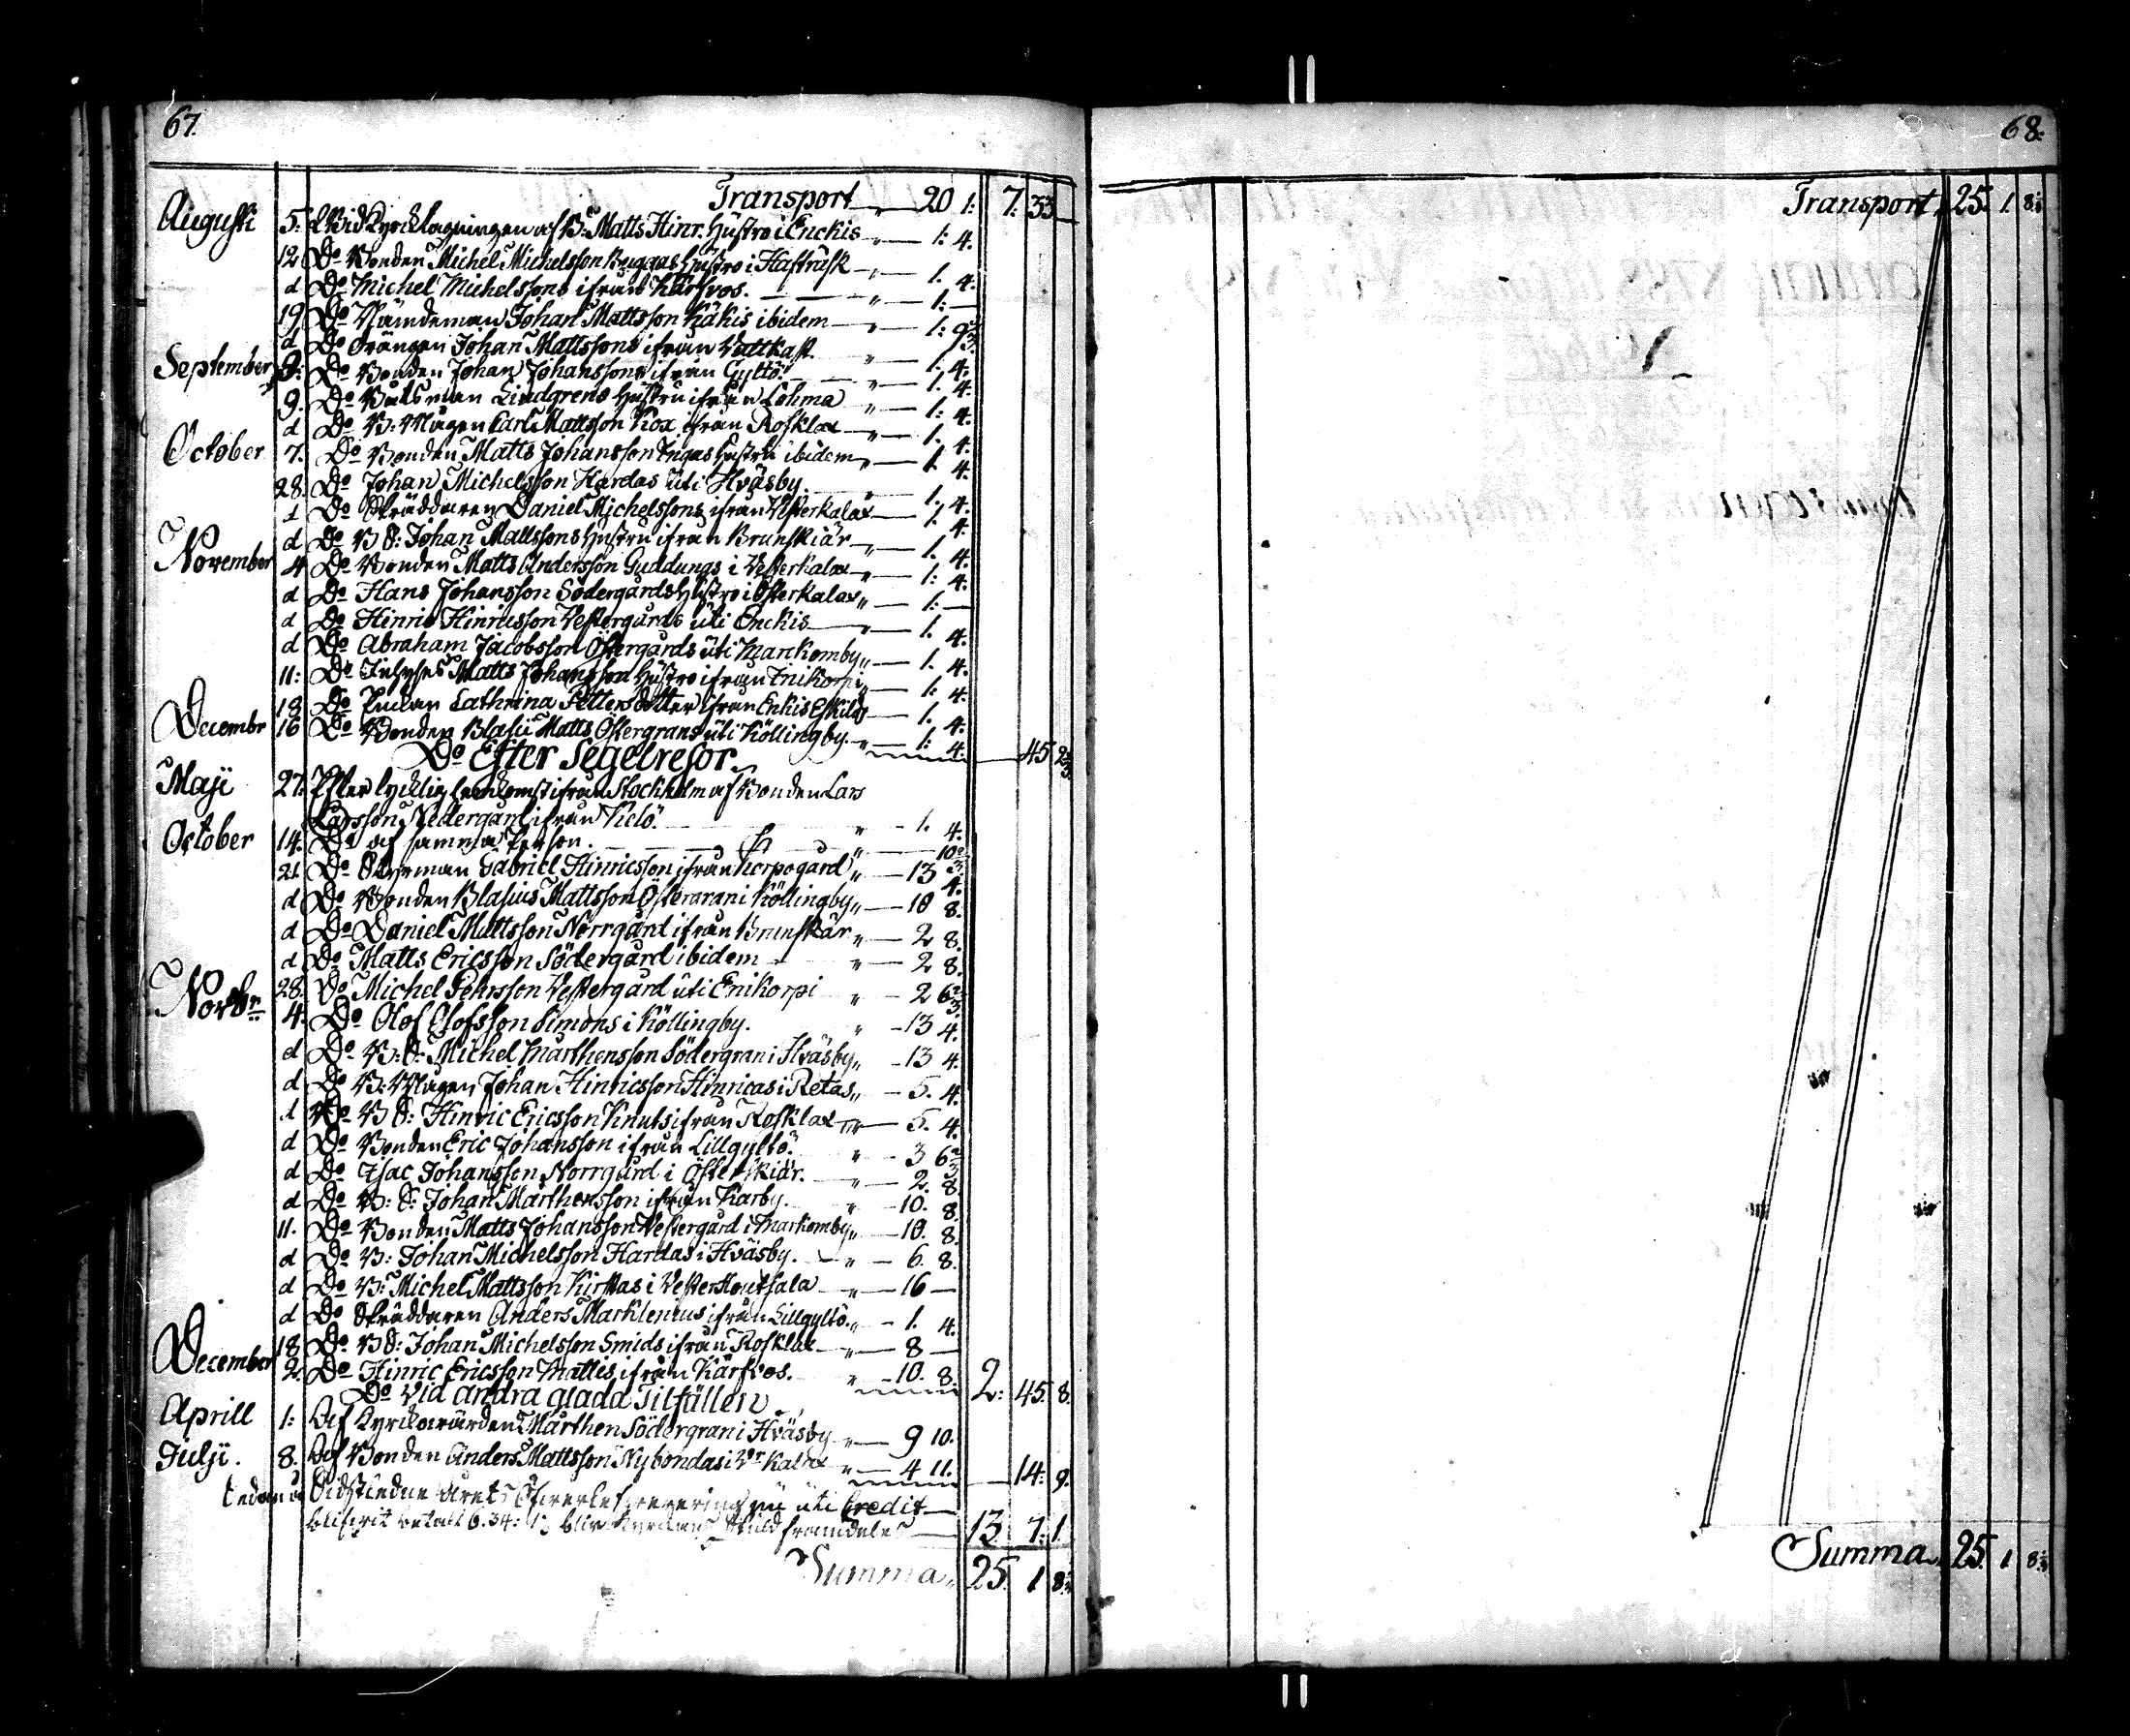 67.
Transport 20 1: 7. 33
Augusti 5. Vid Kyrcktagningen af B: Matts Hinr. Hustro i Enckis " 1: 4.
12 Do Bonden Michel Michelsson Buggas Hustro i Hafträsk " 1. 4.
d Do Michel Michelssons ifrån Kärfvos. " 1:
19 Do Nämdeman Johan Mattsson Käkis ibidem " 1: 9 2/3
d Do Drängen Johan Mattssons ifrån Vattkast. " 1. 4.
September 9: Do Bonden Johan Johanssons ifrån Gyltö. " 1. 4.
9. Do Båtsman Lindgrens Hustru ifrån Lohma " 1: 4.
d Do B: Mågen Carl Mattsson Kox ifrån Rosklax " 1. 4.
October 7. Do Bonden Matts Johansson Ingas Hustru ibidem " 1. 4.
28. Do Johan Michelsson Hardas uti Hväsby. 1. 4.
d Do Skräddaren Daniel Michelssons ifrån Vesterkalax 1. 4.
d Do B S: Johan Mattssons Hustru ifrån Brunskiär " 1. 4.
November 4 Do Bonden Matts Andersson Guddungs i Vesterkalax " 1: 4.
d Do Hans Johansson Södergårds Hustro i Österkalax " 1:
d Do Hinric Hinricsson Vestergårds uti Enckis " 1. 4.
d Do Abraham Jacobsson Östergårds uti Marckomby " 1. 4.
11: Do Matts Johansson Hustro ifrån Enikorpi " 1: 4.
18 Do Cathrina Pettersdotter ifrån Enkis Eskils 1. 4.
Decembr 16 Do Bonden Blasii Matts Östergrans uti Köllingby. " 1: 4.
Do Efter Segelresor. 45 2/3
Maji 27. Efter lycklig hemkomst ifrån Stockholm af Bonden Lars
Larsson Nedergård ifrån Kielö. " 1. 4.
October 14. Do af samma Person. " 10 2/3
21. Do Styrman Gabriel Hinricsson ifrån Korpogård " 13 4.
d Do Bonden Blasius Mattsson Östergran i Köllingby " 10 8.
d Do Daniel Mattsson Norrgård ifrån Brunskär " 2 8.
d Do Matts Ericsson Södergård ibidem " 2 8.
28. Do Michel Pehrsson Vestergård uti Enikorpi " 2 6 2/3
Novbr 4. Do Olof Olofsson Simons i Köllingby. " 13 4.
d Do B: S: Michel Mårthensson Södergran i Hväsby " 13 4.
d Do B: Mågen Johan Hinricsson Hinricas i Retas " 5. 4.
d Do B S: Hinric Ericsson Knuts ifrån Rosklax 5. 4.
d Do Bonden Eric Johansson ifrån Lillgyltö. " 3 6 2/3
d Do Isac Johansson Norrgård i Österskiär. " 2. 8
d Do B: S: Johan Mårthensson ifrån Karby. " 10. 8.
11. Do Bonden Matts Johansson Vestergård i Markomby " 10. 8.
d Do B: Johan Michelsson Hardas i Hväsby. " 6. 8.
d Do B: Michel Mattsson Kirstas i Vesterhoutsala " 16
d Do Skräddaren Anders Marklenius ifrån Lillgyltö. " 1. 4.
18 Do B S: Johan Michelsson Smids ifrån Rosklax " 8
December 2 Do Hinric Ericsson Mattis ifrån Kärfvos. " 10. 8. 2: 45. 8.
Do Vid andra glada Tilfällen
Aprill 1: Af Kyrckowärden Mårthen Södergran i Hväsby " 9 10.
Julji. 8. Af Bonden Anders Mattsson Nybondas i Vr Kalax " 4 11. 14: 9.
Sidstledne Årets uti Credit
blifvit betalt 6. 34: blir Kyrckans Skuld framdeles 13 7: 1
Summa " 25 1 8 1/3
68:
Transport " 25. 1. 8 1/3
Summa " 25. 1 8 1/3